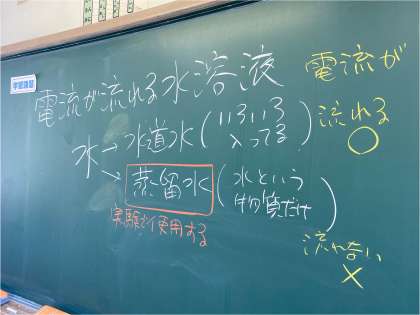 電流が流れる水溶液
電流が
流れる
○
水→水道水(いろいろ入ってる)
→蒸留水(水という物質だけ)
実験で使用する
流れない
×